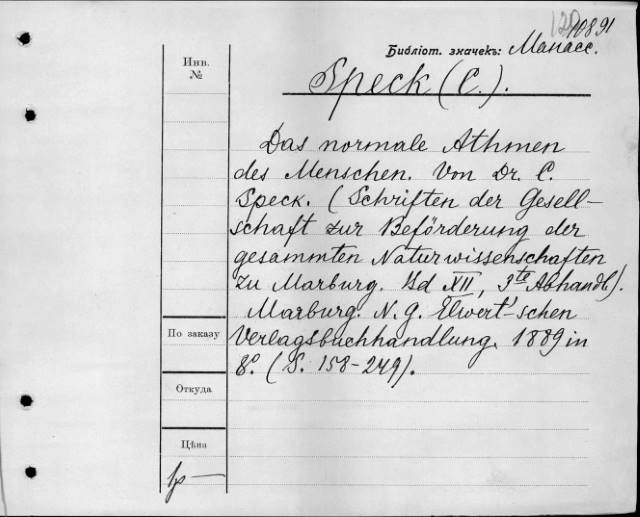 10891
Библіот. значекъ: Манасс.
Инв. №
Speck (C.).
Das normale Athmen
des Menschen. Von Dr. C.
Speck. (Schriften der Gesell-
schaft zur Beförderung der
gesammten Naturwissenschaften
zu Marburg. Bd XII, 3te Abhandl).
Marburg. N. G. Elwert'schen
Verlagsbuchhandlung. 1889 in
8°. (S. 158-249).
По заказу
Откуда
Цѣна